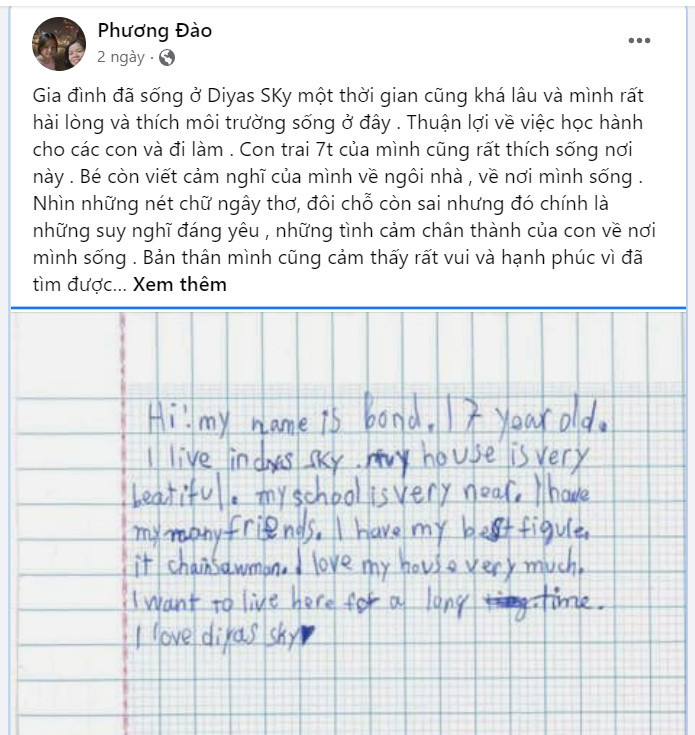 Phương Đào
2 ngày ·
Gia đình đã sống ở Diyas SKy một thời gian cũng khá lâu và mình rất
hài lòng và thích môi trường sống ở đây . Thuận lợi về việc học hành
cho các con và đi làm . Con trai 7t của mình cũng rất thích sống nơi
này . Bé còn viết cảm nghĩ của mình về ngôi nhà , về nơi mình sống .
Nhìn những nét chữ ngây thơ, đôi chỗ còn sai nhưng đó chính là
những suy nghĩ đáng yêu , những tình cảm chân thành của con về nơi
mình sống . Bản thân mình cũng cảm thấy rất vui và hạnh phúc vì đã
tìm được... Xem thêm
Hi! my name is bond. I 7 year old.
I live in sky. my house is very
beatiful. my school is very near. I have
my many friends. I have my best figule.
it chainsawman. I love my house very much.
I want to live here for a long time.
I love diyas sky